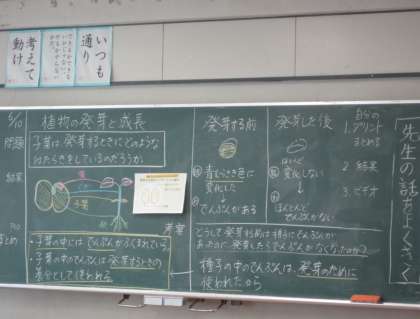 いつも
通り
考えて
動け
5/10
植物の発芽と成長
問題
子葉は発芽するときにどのような
はたらきをしているのだろうか。
結果
子葉
まとめ
・子葉の中にはでんぷんがふくまれている。
・子葉の中のでんぷんは発芽するときの
養分として使われる。
発芽する前
青むらさき色に
変化した
↓
でんぷんがある
発芽した後
ほとんど
変化しない
↓
ほとんど
でんぷんがない
考察
どうして発芽する前は種子にでんぷんが
あったのに発芽したらでんぷんがなくなったのか？
種子の中のでんぷんは、発芽のために
使われたから
自分の
1.プリント
まとめる
2.結果
3.ビデオ
先生の話をよくきく